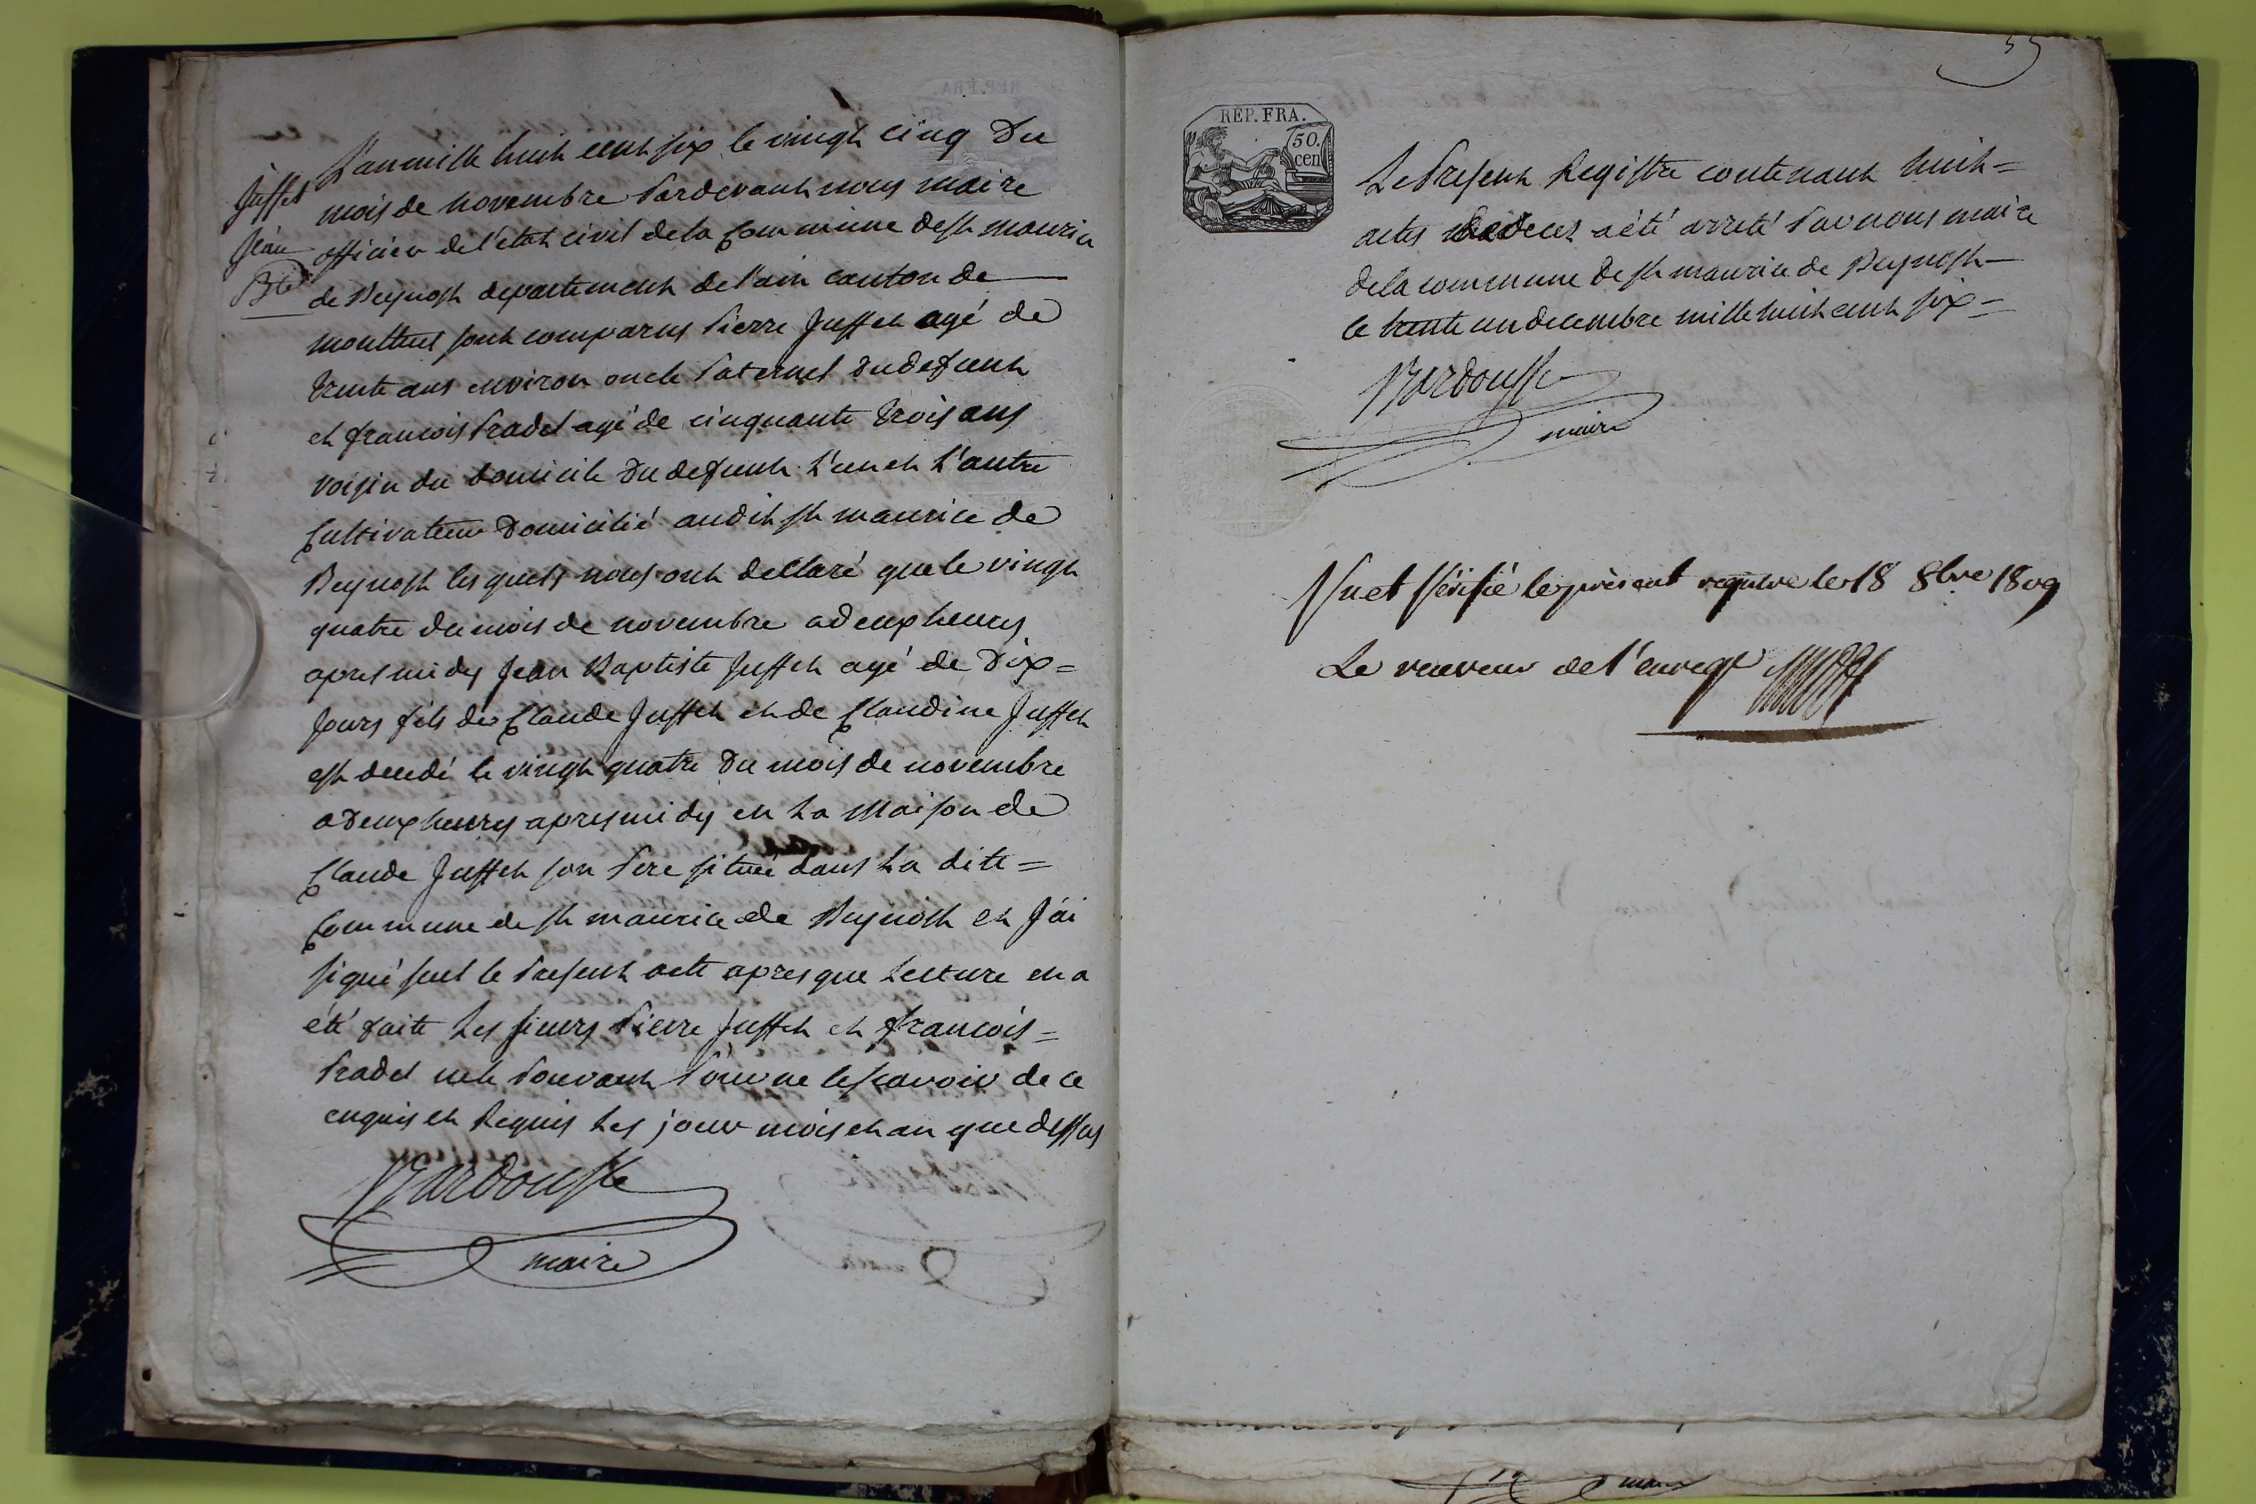 Juffet
Jean
Bte
L'an mille huit cent six le vingt cinq du
mois de novembre Pardevant nous maire
officier de l'état civil de la Commune de st maurice
de Beynost departement de l'ain canton de
montluel sont comparus Pierre Juffet agé de
trente ans environ oncle Paternel du defunt
et francois Pradel agé de cinquante trois ans
voisin du domicile du defunt l'un et l'autre
Cultivateur domicilié audit st maurice de
Beynost les quels nous ont declaré que le vingt
quatre du mois de novembre a deux heures
apres midy Jean Baptiste Juffet agé de dix=
Jours fils de Claude Juffet et de Claudine Juffet
est decedé le vingt quatre du mois de novembre
a deux heures apres midy en La Maison de
Claude Juffet son Pere située dans La dite=
Commune de st maurice de Beynost et J'ai
signé seul le Present acte apres que Lecture en a
été faite Les sieurs Pierre Juffet et francois=
Pradel ne le Pouvant Pour ne le scavoir de ce
enquis et Requis Les jour mois et an que dessus
Bardousse
maire
55
REP. FRA.
50.
cen
Le Present Registre contenant huit=
actes de deces a été arreté Par nous maire
de la commune de st maurice de Beynost
le trente un decembre mille huit cent six=
Bardousse
maire
Vu et Vérifié le présent registre le 18 8bre 1809
Le receveur de l'enregt